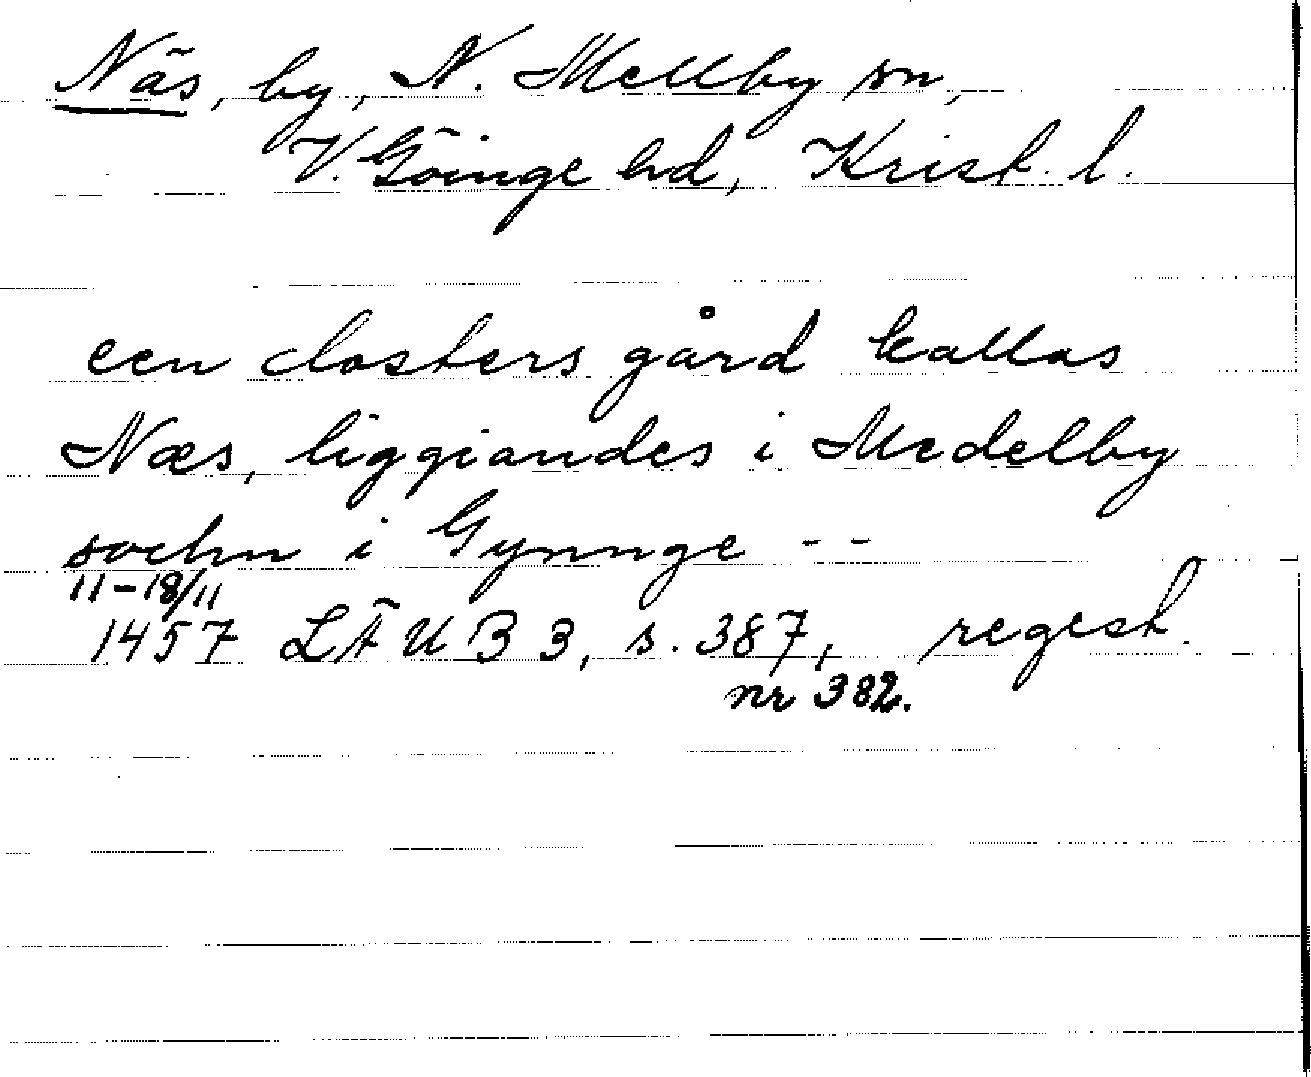 Näs, by, N. Mellby sn,
V. Göinge hd, Krist. l.
een closters gård kallas
Næs, liggiandes i Medelby
sochn i Gynnge --
11-18/11
1457 LÄUB 3, s. 387, regest.
nr 382.